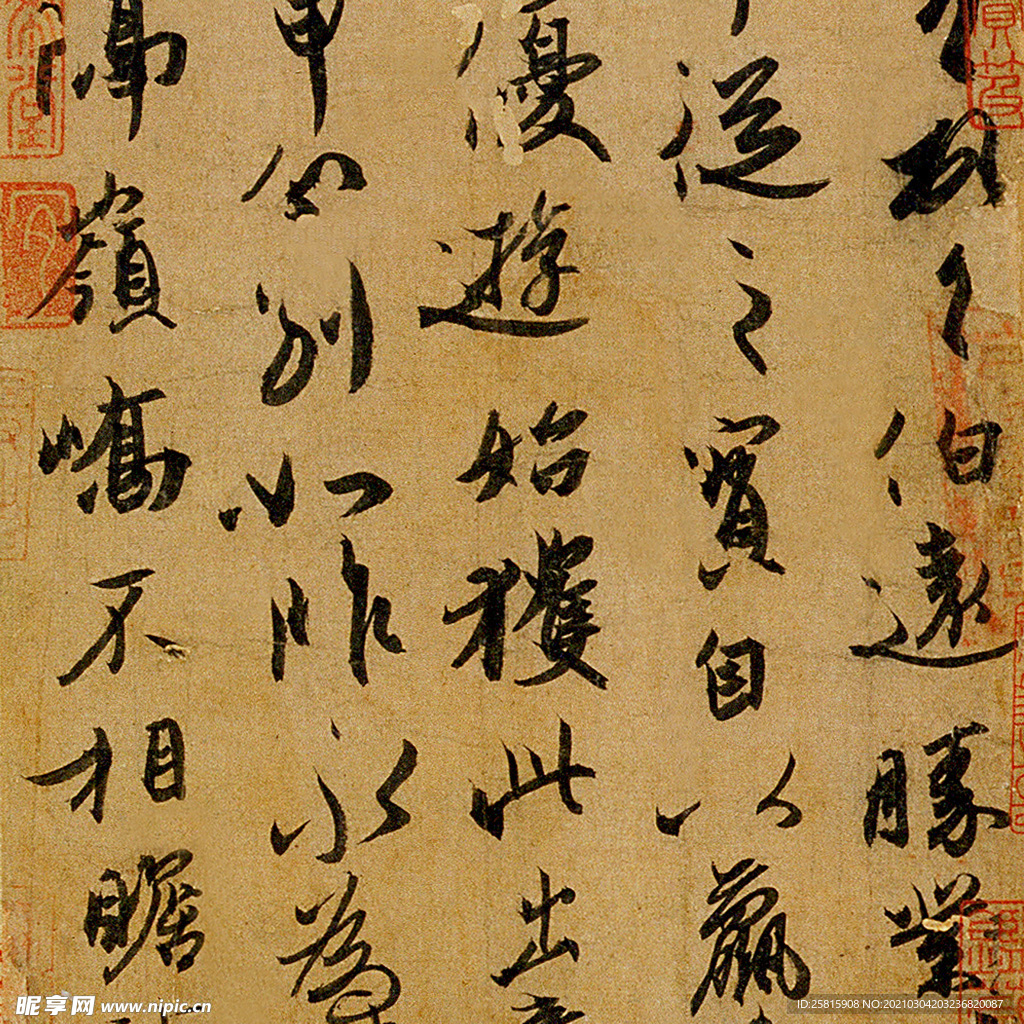 伯遠勝業
從之寶自以羸
優遊始獲此出
申分別如昨永為
隔嶺嶠不相瞻
昵享网 www.nipic.cn
ID:25815908 NO:20210304203236820087